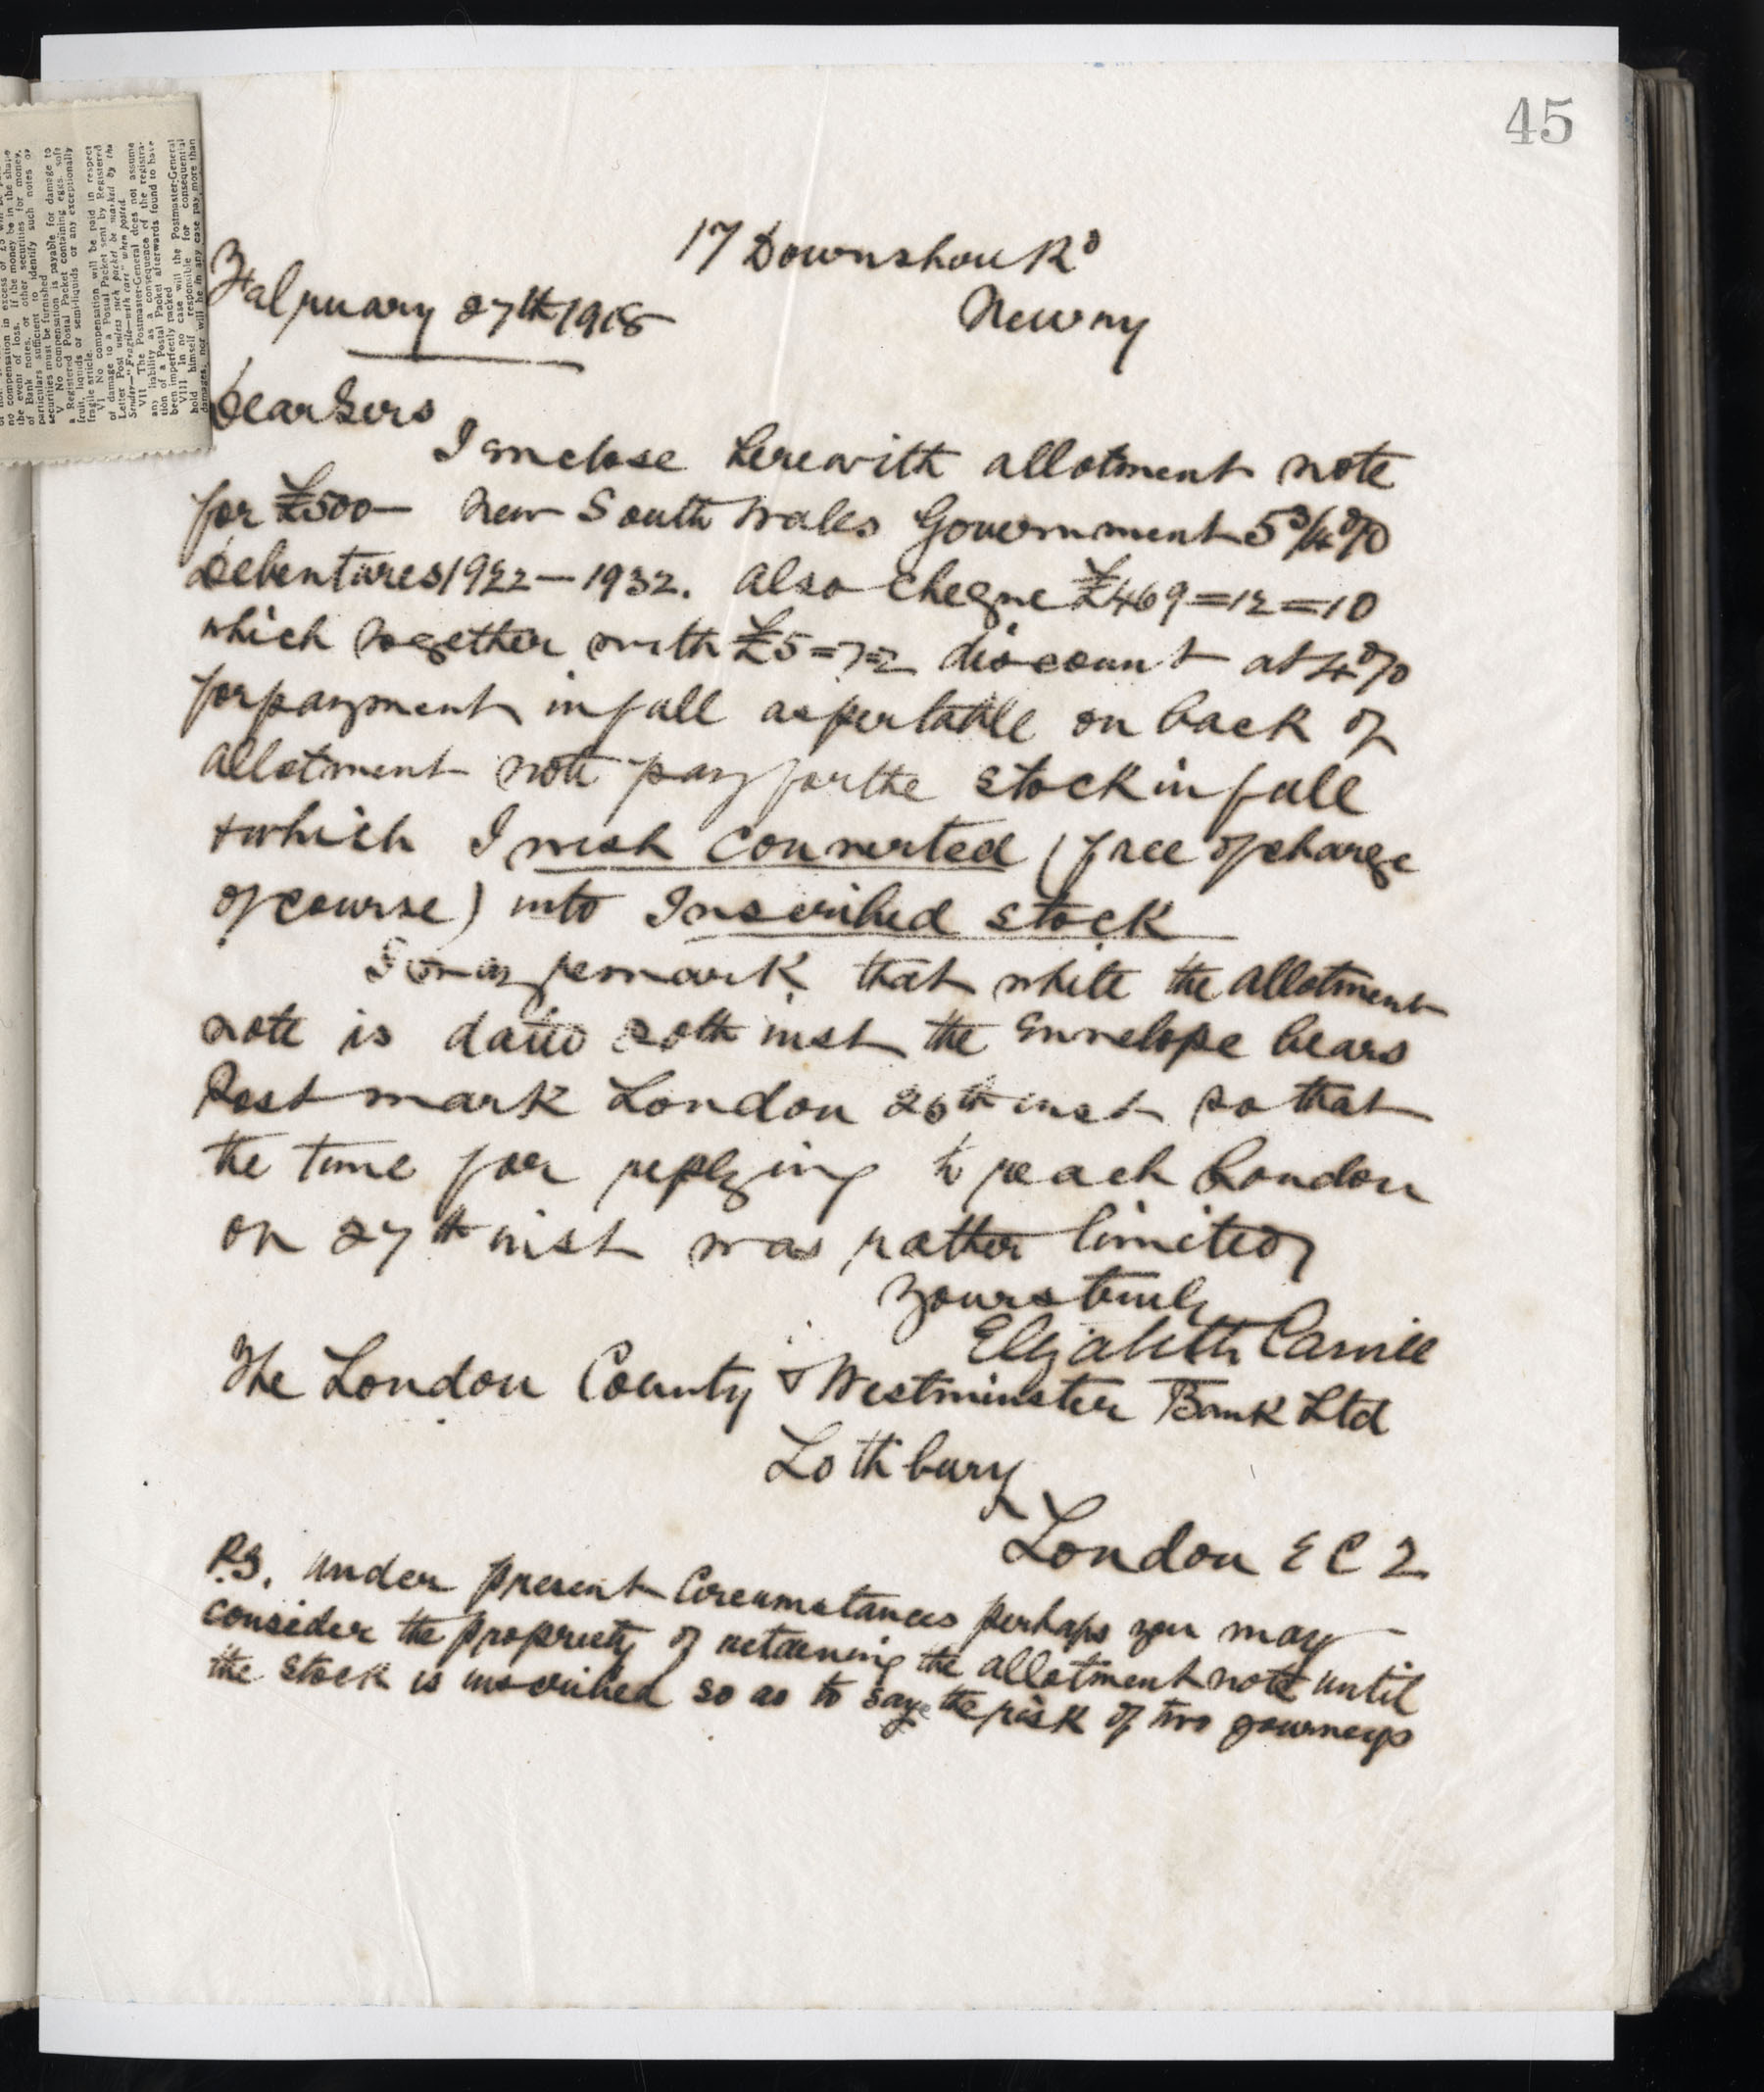 45
17 Downshire Rd
Newry
February 27th 1918
Dear Sirs
I enclose herewith allotment note
for £500 — New South Wales Government 5 3/4 %
Debentures 1922 — 1932. Also cheque £469=12=10
which together with £5=7=2 discount at 4%
for payment in full as per table on back of
allotment note pay for the stock in full
& which I wish converted (free of charge
of course) into Inscribed stock
I may remark that while the allotment
note is dated 20th inst the Envelope bears
Post mark London 26th inst so that
the time for replying to reach London
on 27th inst was rather limited
Yours truly
Elizabeth Carvill
The London County & Westminster Bank Ltd
Lothbury
London E C 2
P.S. Under present Circumstances perhaps you may
consider the propriety of retaining the allotment note until
the stock is inscribed so as to save the risk of two journeys
no compensation in excess of £5 will be
the event of loss, if the money be in the shape
of Bank notes, or other securities for money,
particulars sufficient to identify such notes or
securities must be furnished
V No compensation is payable for damage to
a Registered Postal Packet containing eggs, soft
fruit, liquids or semi-liquids or any exceptionally
fragile article.
VI No compensation will be paid in respect
of damage to a Postal Packet sent by Registered
Letter Post unless such packet be marked by the
Sender—"Fragile—with care" when posted.
VII The Postmaster-General does not assume
any liability as a consequence of the registra-
tion of a Postal Packet afterwards found to have
been imperfectly packed
VIII In no case will the Postmaster-General
hold himself responsible for consequential
damages, nor will he in any case pay more than